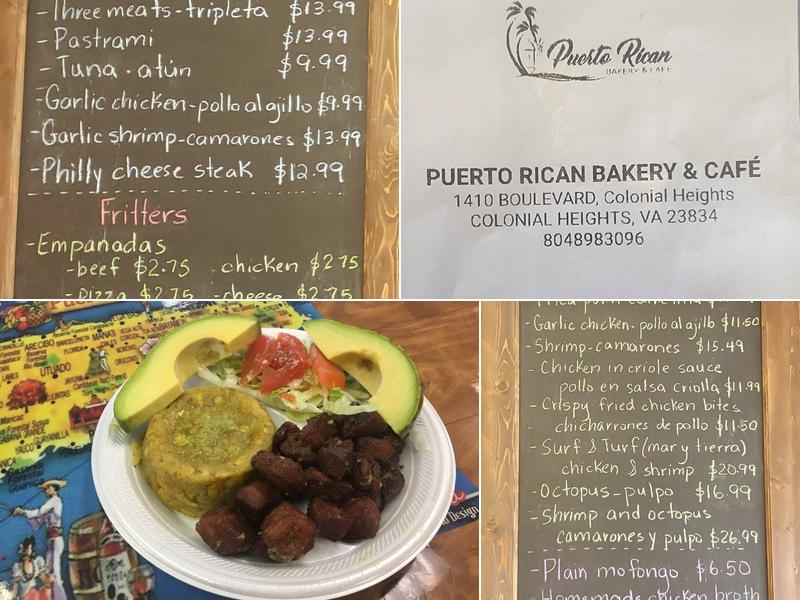 -Three meats-tripleta $13.99
-Pastrami $13.99
-Tuna-atún $9.99
-Garlic chicken-pollo al ajillo $9.99
-Garlic shrimp-camarones $13.99
-Philly cheese steak $12.99
Fritters
-Empanadas
-beef $2.75 -chicken $2.75
-pizza $2.75 -cheese $2.75
Puerto Rican
BAKERY & CAFE
PUERTO RICAN BAKERY & CAFÉ
1410 BOULEVARD, Colonial Heights
COLONIAL HEIGHTS, VA 23834
8048983096
ARECIBO
MANATI
UTUADO
-Garlic chicken-pollo al ajillo $11.50
-Shrimp-camarones $15.49
-Chicken in criole sauce
pollo en salsa criolla $11.99
-Crispy fried chicken bites
chicharrones de pollo $11.50
-Surf & Turf (mar y tierra)
chicken & shrimp $20.99
-Octopus-pulpo $16.99
-Shrimp and octopus
camarones y pulpo $26.99
-Plain mofongo $6.50
-Homemade chicken broth